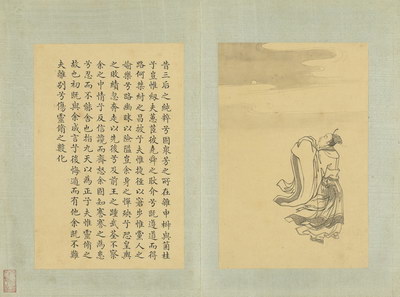 昔三后之純粹兮固衆芳之所在雜申椒與菌桂
兮豈惟紉夫蕙茝彼堯舜之耿介兮既遵道而得
路何桀紂之昌披兮夫惟捷徑以窘步惟黨人之
偷樂兮路幽昧以險隘豈余身之憚殃兮恐皇輿
之敗績忽奔走以先後兮及前王之踵武荃不察
余之中情兮反信讒而齊怒余固知謇謇之為患
兮忍而不能舍也指九天以為正兮夫惟靈脩之
故也初既與余成言兮後悔遁而有他余既不難
夫離別兮傷靈脩之數化